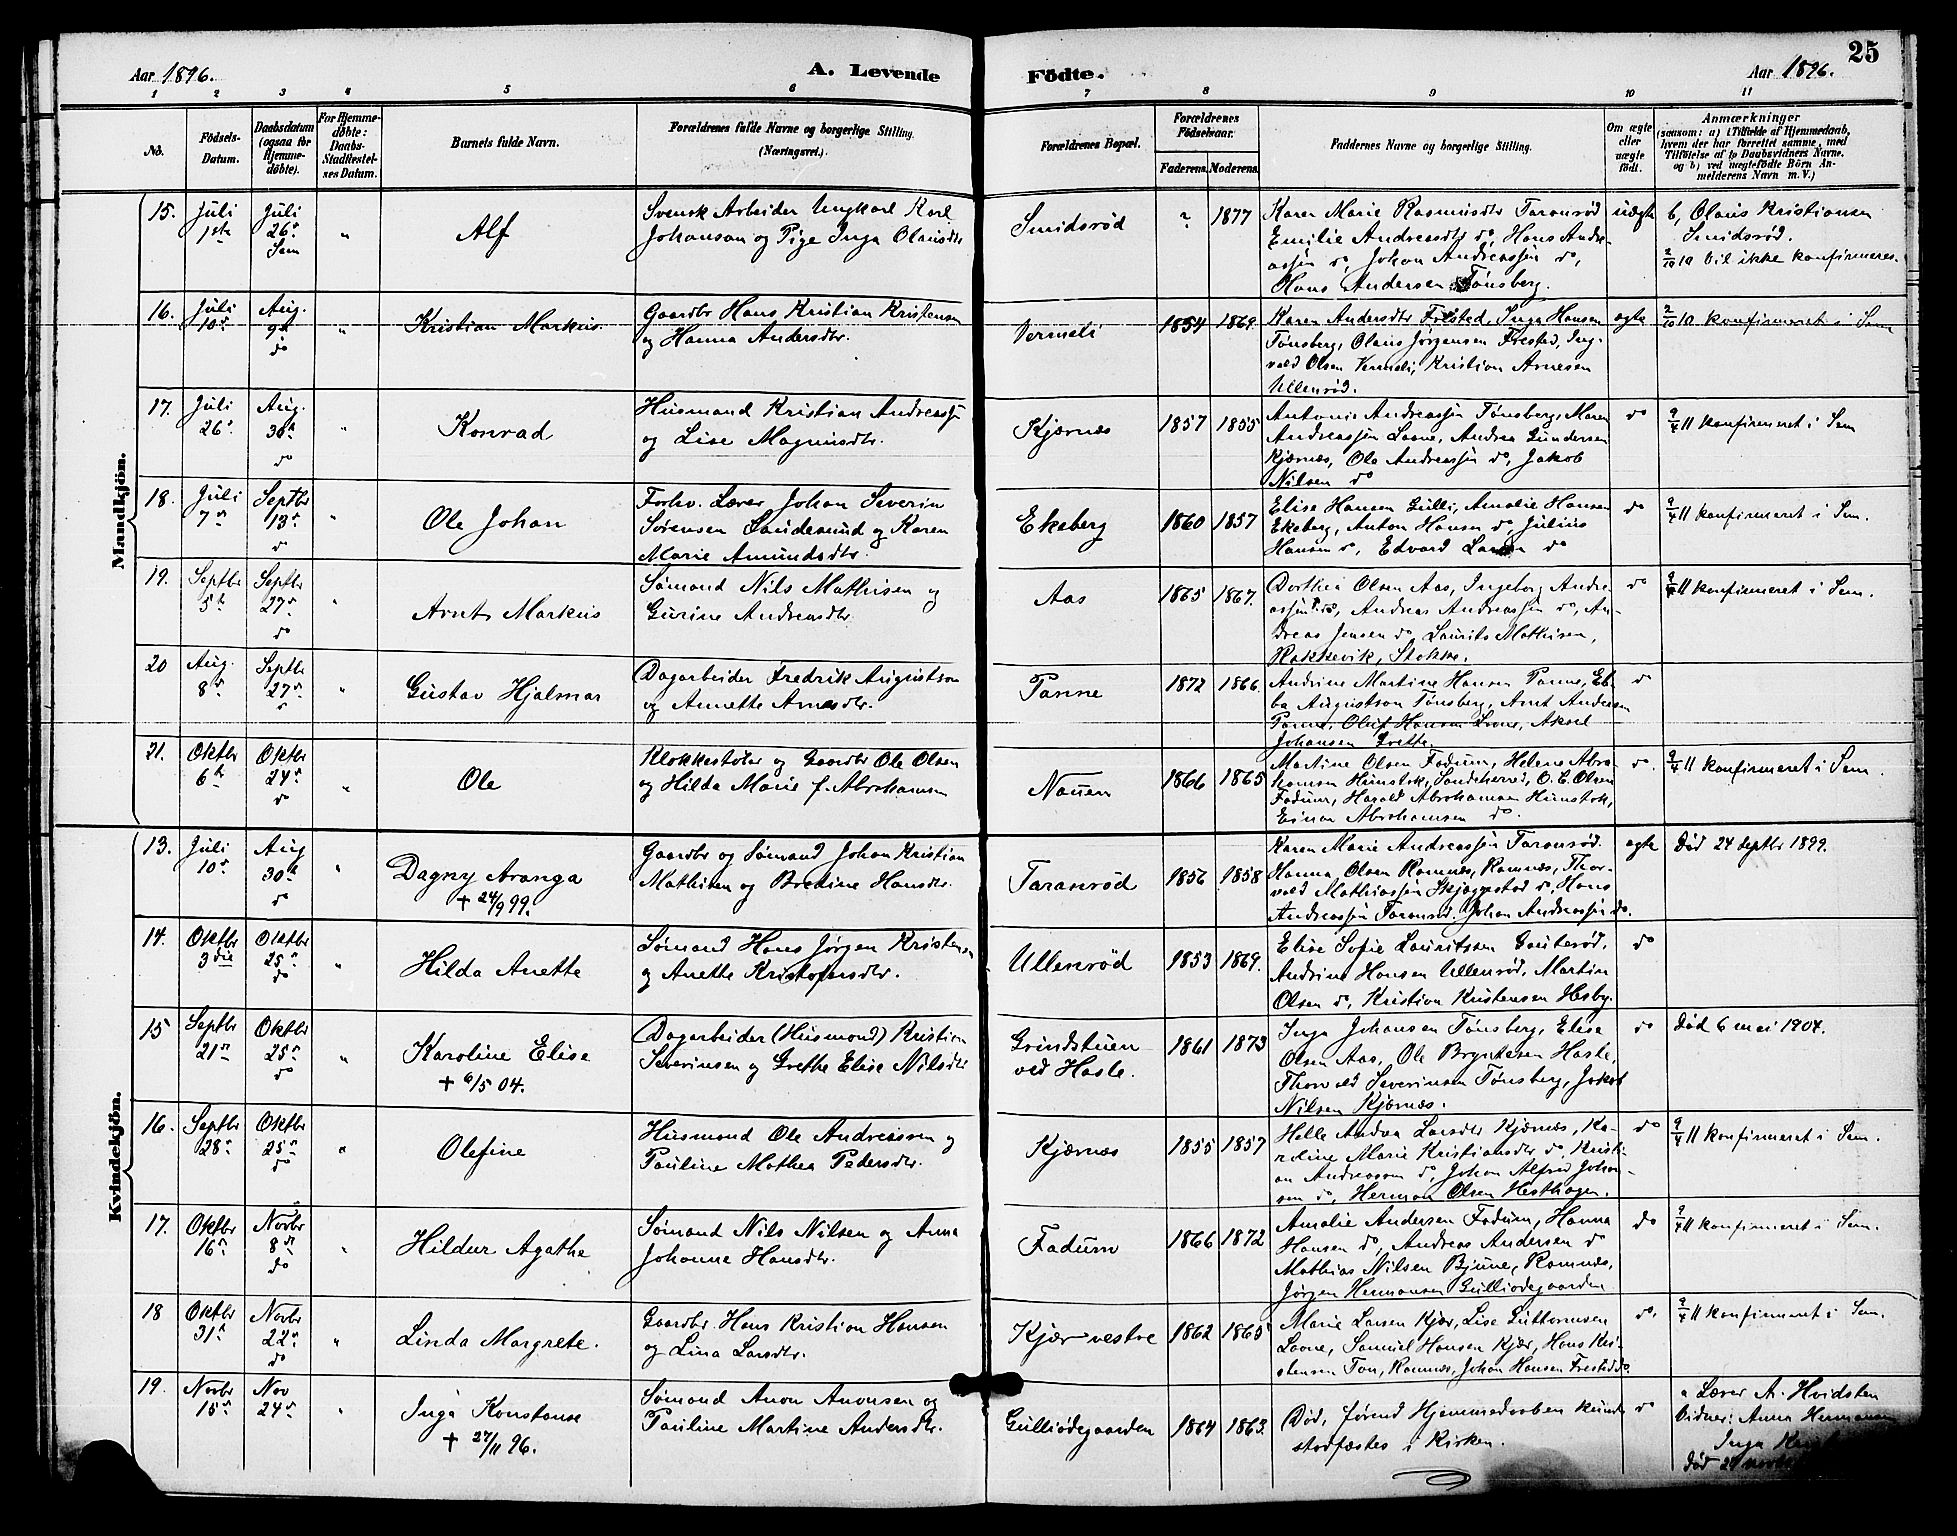 25
Aar 1896.
A. Levende
Födte.
Aar 1896.
1 2 3 4 5 6 7 8 9 10 11
No.
Födsels-
Datum.
Daabsdatum
(ogsaa for
Hjemme-
döbte).
For Hjemme-
döbte:
Daabs-
Stadfæstel-
ses Datum.
Barnets fulde Navn.
Forældrenes fulde Navne og borgerlige Stilling.
(Næringsvei.)
Forældrenes Bopæl.
Forældrenes
Födselsaar.
Faderens. Moderens.
Faddernes Navne og borgerlige Stilling.
Om ægte
eller
uægte
födt.
Anmærkninger
(saasom: a) i Tilfælde af Hjemmedaab,
hvem der har forrettet samme, med
Tilföielse af to Daabsvidners Navne,
og b) ved uægtefödte Börn An-
melderens Navn m. V.)
Mandkjön.
15.
Juli
1ste
Juli
26de
Sem
"
Alf
Svensk Arbeider Ungkarl Karl
Johansen og Pige Inga Olausdtr
Smidsrød
?
1877
Karen Marie Rasmusdtr Taranrød
Emilie Andreasdtr do, Hans Andre-
assen do, Johan Andreassen do,
Hans Andersen Tønsberg.
uægte
b, Olaus Kristiansen
Smidsrød.
2/10 10 bil ikke konfirmeres.
16.
Juli
10de
Aug.
9de
do
"
Kristian Markus.
Gaardbr Hans Kristian Kristensen
og Hanna Andersdtr.
Vermeli
1854
1869.
Karen Andersdtr Frested, Inga Hansen
Tønsberg, Olaus Jørgensen Frestad, Ing-
vald Olsen Vermeli, Kristian Arnesen
Ullenrød.
ægte
2/10 10 konfirmeret i Sem
17.
Juli
26de
Aug.
30te
do
"
Konrad
Husmand Kristian Andreassen
og Lise Magnusdtr.
Kjærnæs
1857
1855
Antoni Andreassen Tønsberg, Maren
Andreassen Lovne, Andrea Gundersen
Kjærnæs, Ole Andreassen do, Jakob
Nilsen do
do
9/4 11 konfirmeret i Sem
18.
Juli
7de
Septbr
13de
do
"
Ole Johan
Forhv. Lærer Johan Severin
Sørensen Sandesund og Karen
Marie Amundsdtr.
Ekeberg
1860
1857
Elise Hansen Gulli, Amalie Hansen
Ekeberg, Anton Hansen do, Julius
Hansen do, Edvard Larsen do
do
9/4 11 konfirmeret i Sem.
19.
Septbr
5te
Septbr
27de
do
"
Arnt Markus
Sømand Nils Mathisen og
Gurine Andreasdtr.
Aas
1865
1867.
Dorthea Olsen Aas, Ingeborg Andre-
assen do, Andreas Andreassen do, An-
dreas Jensen do, Laurits Mathisen,
Rakkevik, Stokke.
do
9/4 11 konfirmeret i Sem.
20
Aug.
8de
Septbr
27de
do
"
Gustav Hjalmar
Dagarbeider Fredrik Augustson
og Annette Arnesdtr.
Tanne
1872
1866.
Andrine Martine Hansen Tanne, Eb-
ba Augustson Tønsberg, Arnt Andersen
Tanne, Oluf Hansen Lovne, Aksel
Johansen Grette.
do
21.
Oktbr
6te
Oktbr
24de
do
"
Ole
Klokkestøber og Gaardbr Ole Olsen
og Hilda Marie f. Abrahamsen
Nauen
1866
1865
Martine Olsen Fodum, Helene Abra-
hamsen Hunstok, Sandeherred, O. C. Olsen
Fadum, Harald Abrahamsen Hunstok,
Einar Abrahamsen do.
do.
9/4 11 konfirmeret i Sem.
Kvindekjön.
13.
Juli
10de
Aug
30te
do
"
Dagny Aranga
+ 24/9 99.
Gaardbr og Sømand Johan Kristian
Mathisen og Bredine Hansdtr.
Taranrød
1856
1858
Karen Marie Andreassen Taranrød.
Hanna Olsen Ramnæs, Ramnæs, Thor-
vald Mathiassen Skjeggestad do, Hans
Andreassen Taranrød. Johan Andreassen do.
ægte
Død 24 septbr 1899.
14.
Oktbr
3die
Oktbr
25de
do
"
Hilda Anette
Sømand Hans Jørgen Kristensen
og Anette Kristofersdtr.
Ullenrød
1853
1869.
Elise Sofie Lauritssen Gauterød.
Andrine Hansen Ullenrød, Martin
Olsen do, Kristian Kristensen Hesby.
do
15
Septbr
21de
Oktbr
25de
do
"
Karoline Elise
+ 6/5 04.
Dagarbeider (Husmand) Kristian
Severinsen og Grethe Elise Nilsdtr
Grindstuen
ved Hasle.
1861
1873
Inga Johansen Tønsberg, Elise
Olsen Aas, Ole Bryntesen Hasle,
Thorvald Severinsen Tønsberg, Jakob
Nilsen Kjærnæs.
do
Død 6 mai 1904.
16.
Septbr
28de
Oktbr
25de
do
"
Olefine
Husmand Ole Andreassen og
Pauline Mathea Pedersdtr.
Kjærnæs
1855
1857
Helle Andrea Larsdtr Kjærnæs, Ka-
roline Marie Kristiansdtr do, Kristi-
an Andreassen do, Johan Alfred Johan-
sen do, Herman Olsen Hesthagen.
do
9/4 11 konfirmeret i Sem.
17.
Oktbr
16de
Novbr
8de
do
"
Hildur Agathe
Sømand Nils Nilsen og Anna
Johanne Hansdtr.
Fadum
1866
1872
Amalie Andersen Fadum, Hanna
Hansen do, Andreas Andersen do
Mathias Nilsen Bjune, Ramnæs,
Jørgen Hermansen Gulliødegaarden.
do
9/4 11 konfirmeret i Sem.
18
Oktbr
31te
Novbr
22de
do
"
Linda Margrete.
Gaardbr. Hans Kristian Hansen
og Lina Larsdtr.
Kjær vestre
1862
1865
Marie Larsen Kjær, Lise Guttormsen
Lovne, Samuel Hansen Kjær, Hans Kri-
stensen Ton, Ramnæs, Johan Hansen Frested do.
do.
9/4 11 konfirmeret i Sem.
19.
Novbr
15de
Nov
24de
"
Inga Konstanse
+ 27/11 96.
Sømand Anon Anonsen og
Pauline Martine Andersdtr.
Gulliødegaarden
1864
1863.
Død, førend Hjemmedaaben kunde
stadfæstes i Kirken.
do
a Lærer A. Hvidsten
Vidner: Anna Hermansen
Inga
Død 27 novbr